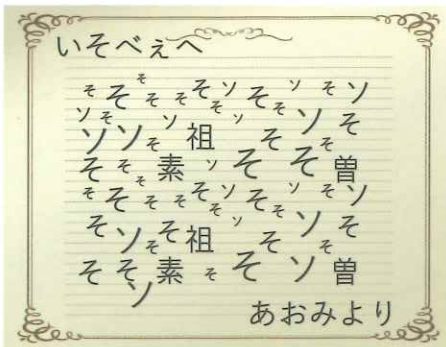 いそべぇへ
そそそそそそソそソそソ
ソそソそソソそ
ソソそ祖そそ
そそそ素ソそそ曽
そそそそそソそソそソ
そソそそソソそ
ソそ祖そそ
そそ素そそソ曽
ソ
あおみより